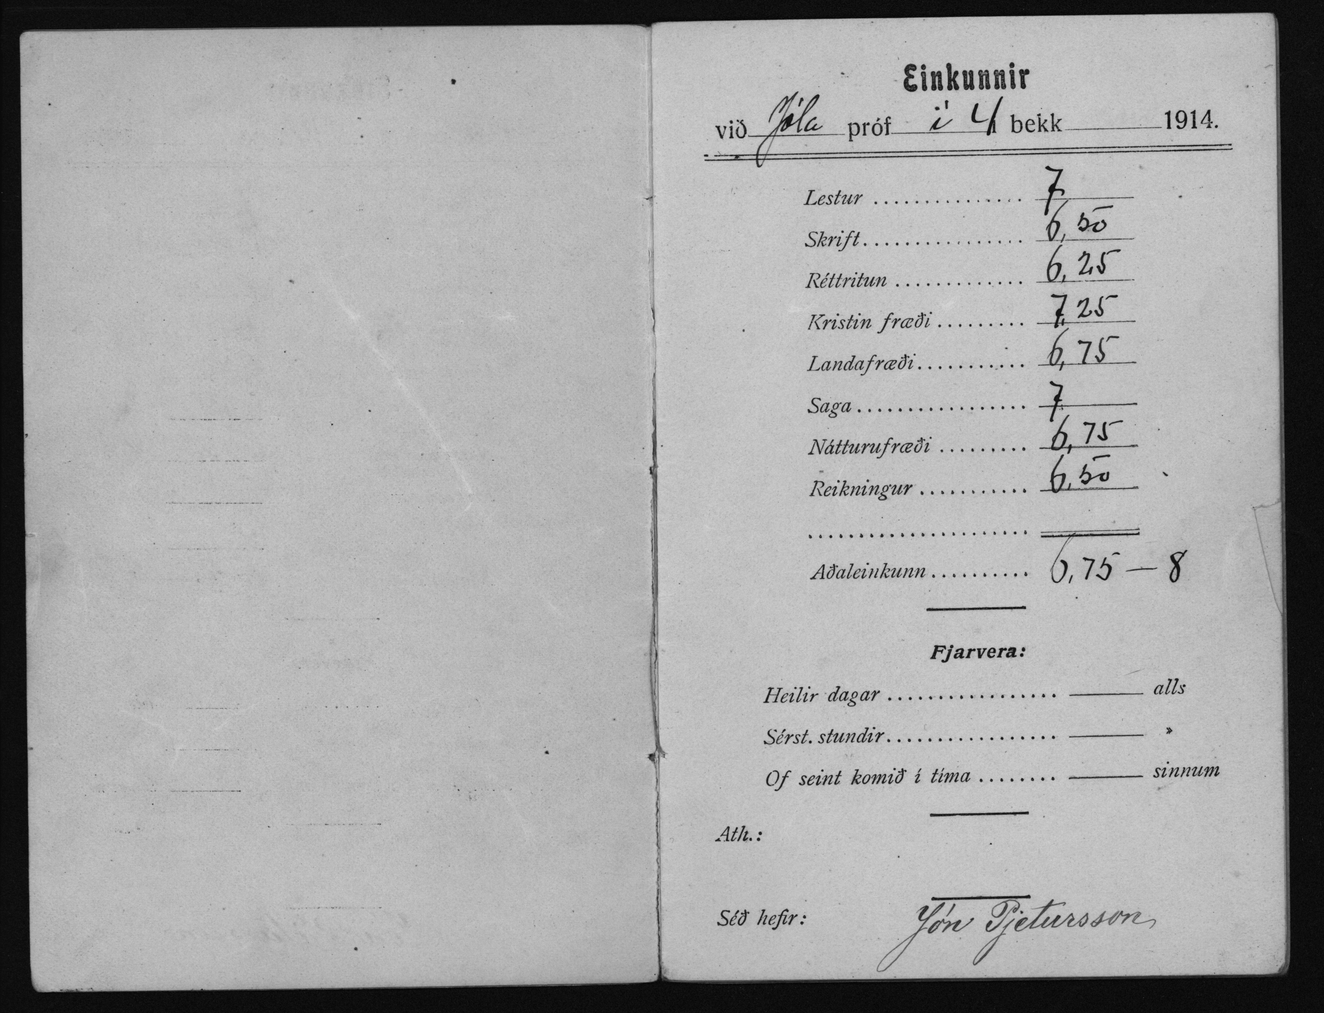 Einkunnir
við Jóla próf í 4 bekk 1914.
Lestur .............. 7
Skrift ................ 6,50
Réttritun ............. 6,25
Kristin fræði ......... 7,25
Landafræði ........... 6,75
Saga ................. 7
Nátturufræði ......... 6,75
Reikningur ........... 6,50
Aðaleinkunn .......... 6,75 — 8
Fjarvera:
Heilir dagar ................. alls
Sérst. stundir ................. »
Of seint komið í tíma ........ sinnum
Ath.:
Séð hefir: Jón Pjetursson